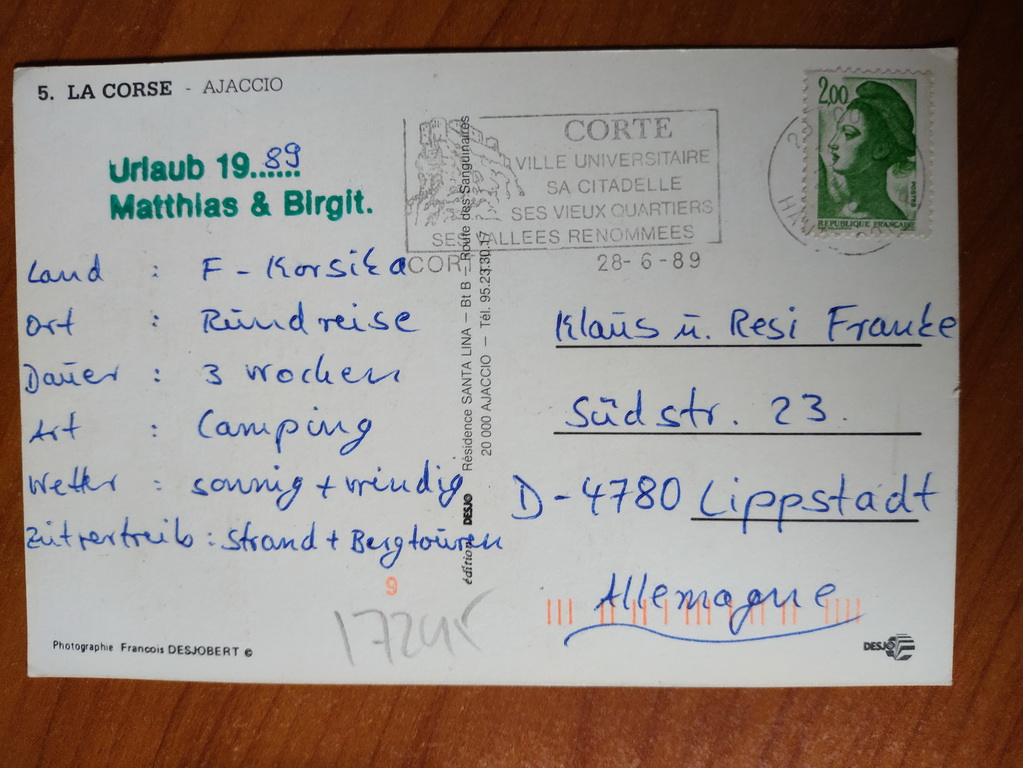 5. LA CORSE - AJACCIO
Urlaub 19..89....
Matthias & Birgit.
Land : F - Korsika
Ort : Rundreise
Dauer : 3 Wochen
Art : Camping
Wetter : sonnig + windig
Zeitvertreib : Strand + Bergtouren
9
Photographie Francois DESJOBERT ©
édition DESJO Résidence SANTA LINA – Bt B – Route des Sanguinaires
20 000 AJACCIO – Tél. 95.23.30.17
CORTE
VILLE UNIVERSITAIRE
SA CITADELLE
SES VIEUX QUARTIERS
SES VALLEES RENOMMEES
28-6-89
2,00
POSTES
REPUBLIQUE FRANÇAISE
Klaus u. Resi Franke
Südstr. 23.
D-4780 Lippstadt
Allemagne
DESJO